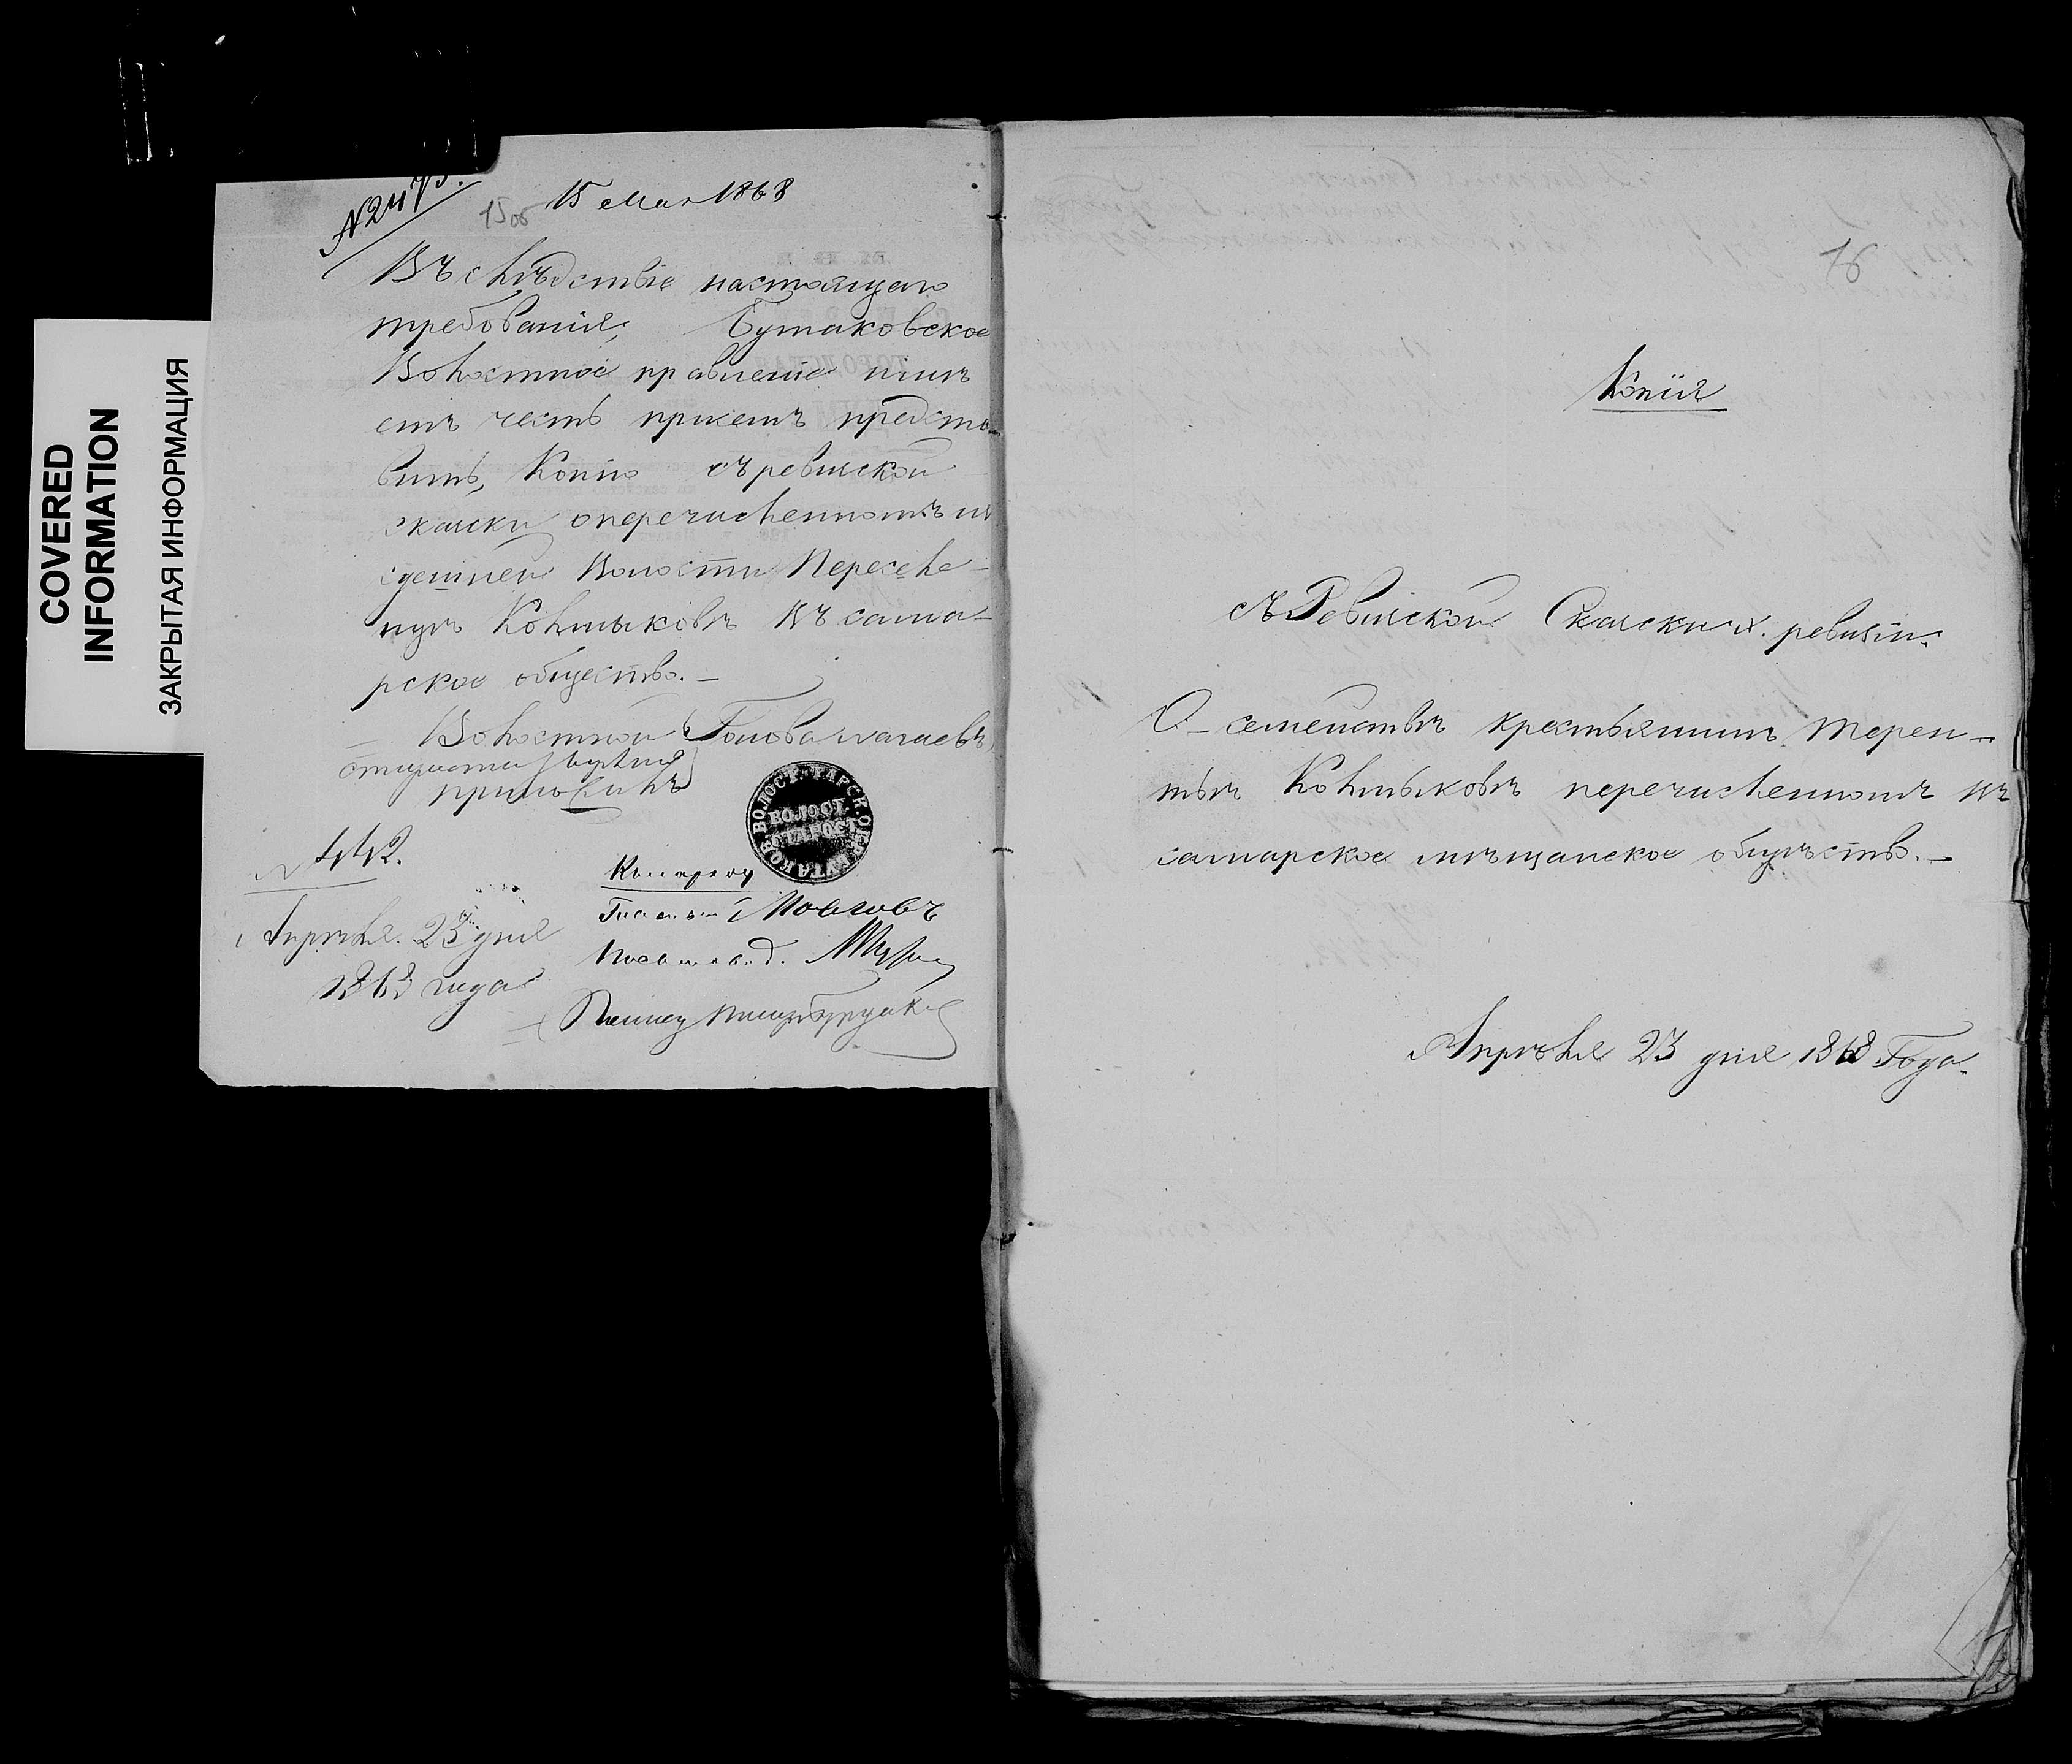 COVERED
INFORMATION
ЗАКРЫТАЯ ИНФОРМАЦИЯ
15 Мая 1868
15об
Въ слѣдствіе настоящаго
требованія, Бутаковское
Волостное правленіе имѣ
етъ честь присемъ предста
вить, Копію съ ревиской
скаски оперечисленномъ из
сдешней Волости Пересѣле-
нцѣ Колмыковѣ Въ сама-
рское общество.-
Волостной Голова
№ 442.
Апрѣля 23 дня
1868 года
ВОЛОСТ.
СТАРОСТ.
16
Копія
съ Ревиской Скаски х. ревизіи.
О-семействѣ крестьянинѣ терен-
тьѣ Колмыковѣ перечисленномъ въ
самарское мѣщанское общѣство.-
Апрѣля 23 дня 1868 Года.